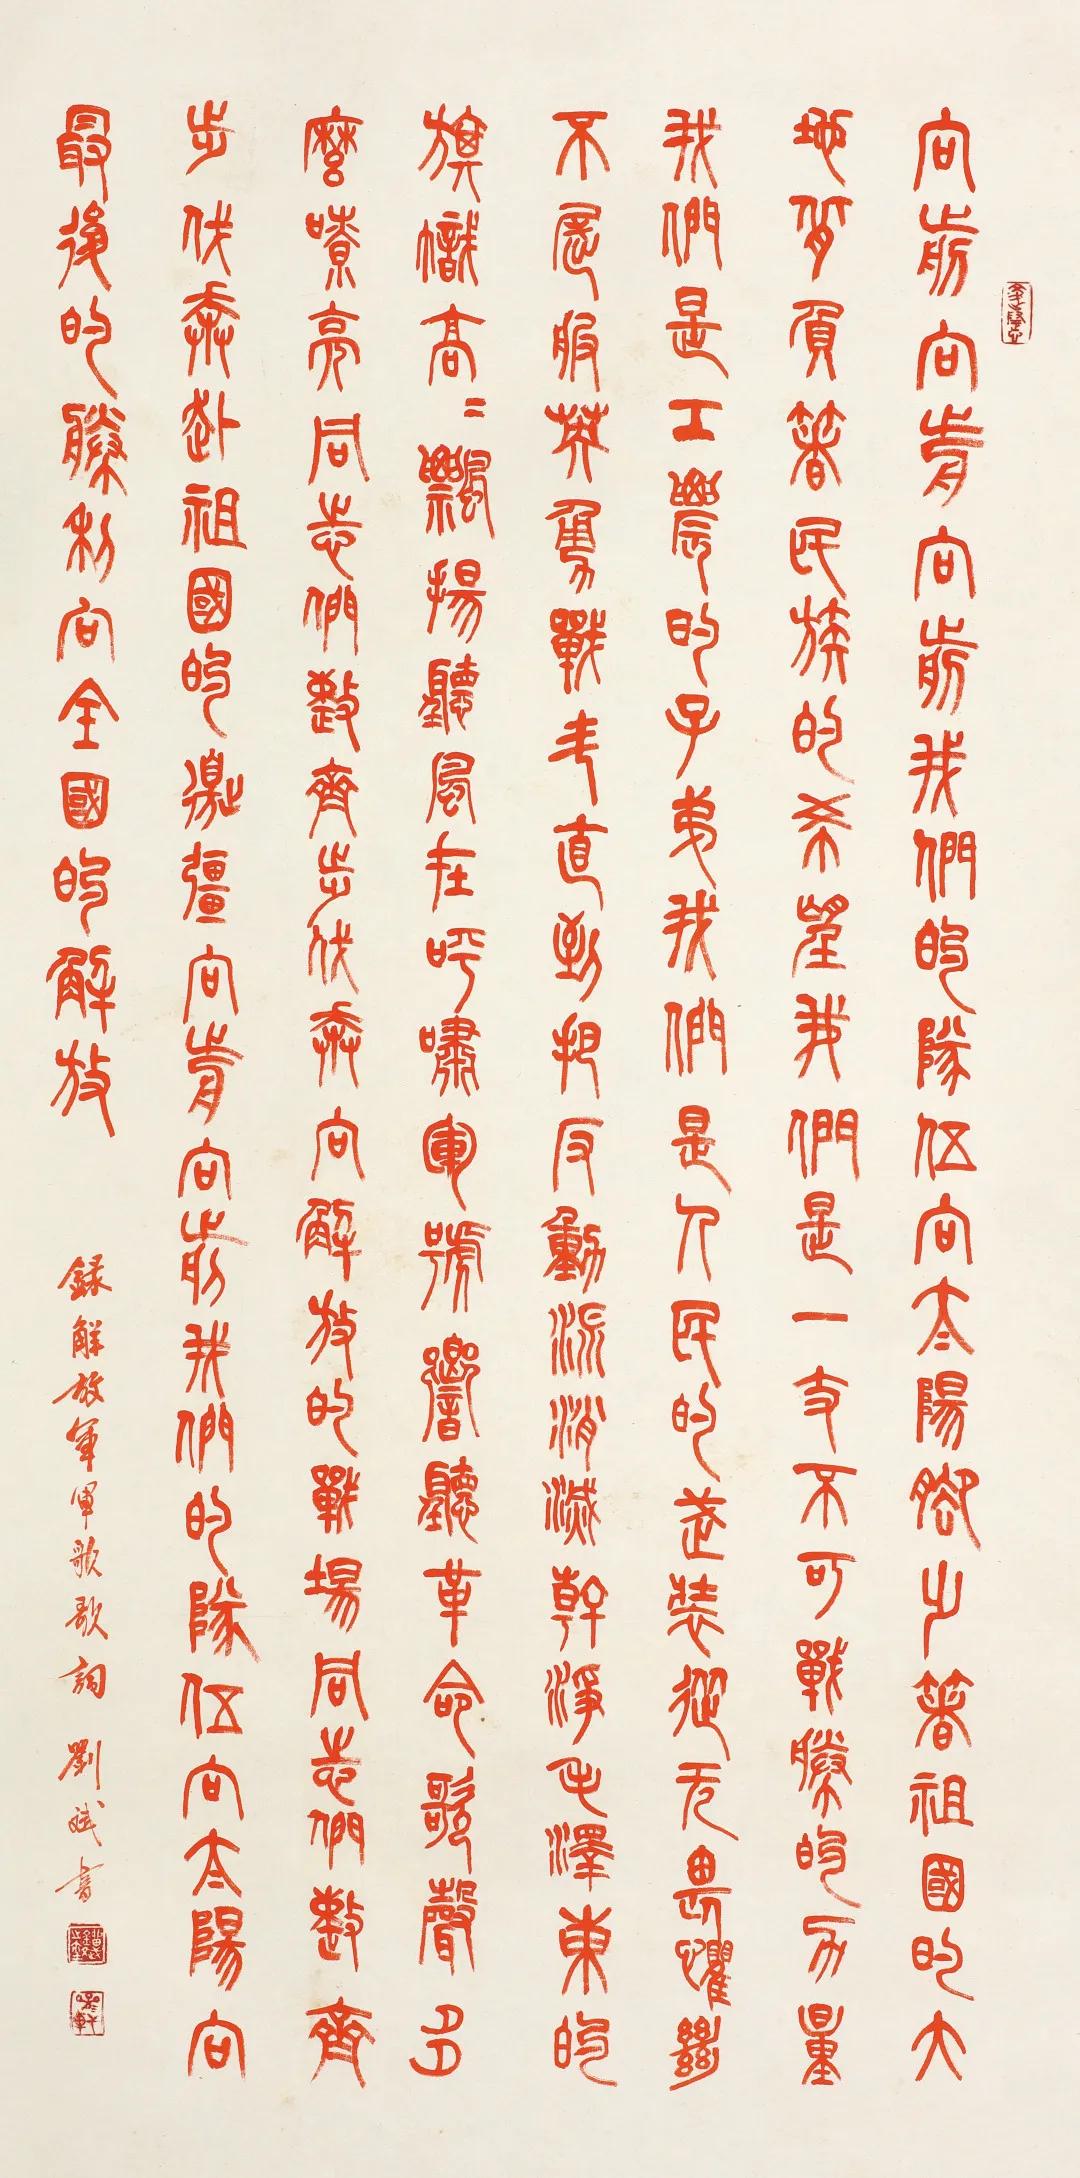 向前向前向前我們的隊伍向太陽腳着祖國的大
地背負着民族的希望我們是一支不可戰勝的力量
我們是工農的子弟我們是人民的武裝從无畏懼絕
不屈服英勇戰鬥直到把反動派消滅幹淨毛澤東的
旗幟高〻飄揚聽風在呼嘯軍號響聽革命歌聲多
麼嘹亮同志們整齊步伐奔向解放的戰場同志們整齊
步伐奔赴祖國的邊疆向前向前我們的隊伍向太陽向
最後的勝利向全國的解放
錄解放軍軍歌歌詞 劉斌書